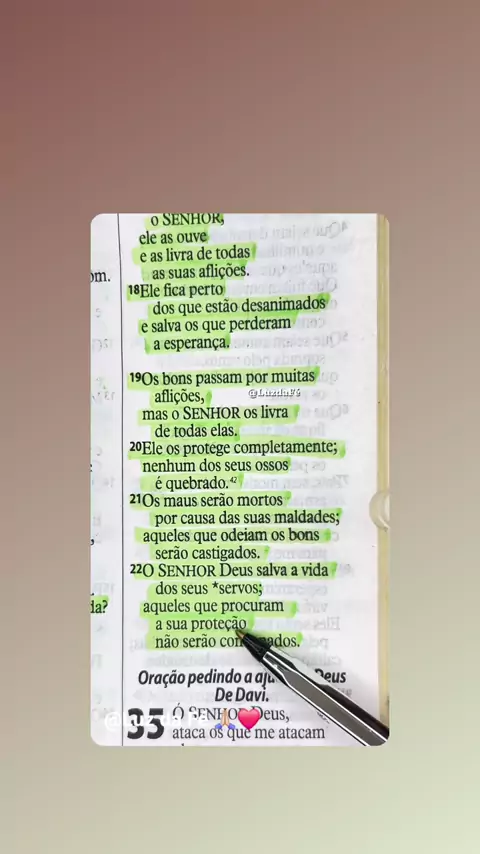 o SENHOR,
ele as ouve
e as livra de todas
as suas aflições.
18Ele fica perto
dos que estão desanimados
e salva os que perderam
a esperança.
19Os bons passam por muitas
aflições,
@LuzdaFé
mas o SENHOR os livra
de todas elas.
20Ele os protege completamente;
nenhum dos seus ossos
é quebrado.42
21Os maus serão mortos
por causa das suas maldades;
aqueles que odeiam os bons
serão castigados.
22O SENHOR Deus salva a vida
dos seus *servos;
aqueles que procuram
a sua proteção
não serão
Oração pedindo a Deus
De Davi.
35 Ó SENHOR Deus,
ataca os que me atacam
@Luz da Fé 🙏❤️
om.
da?